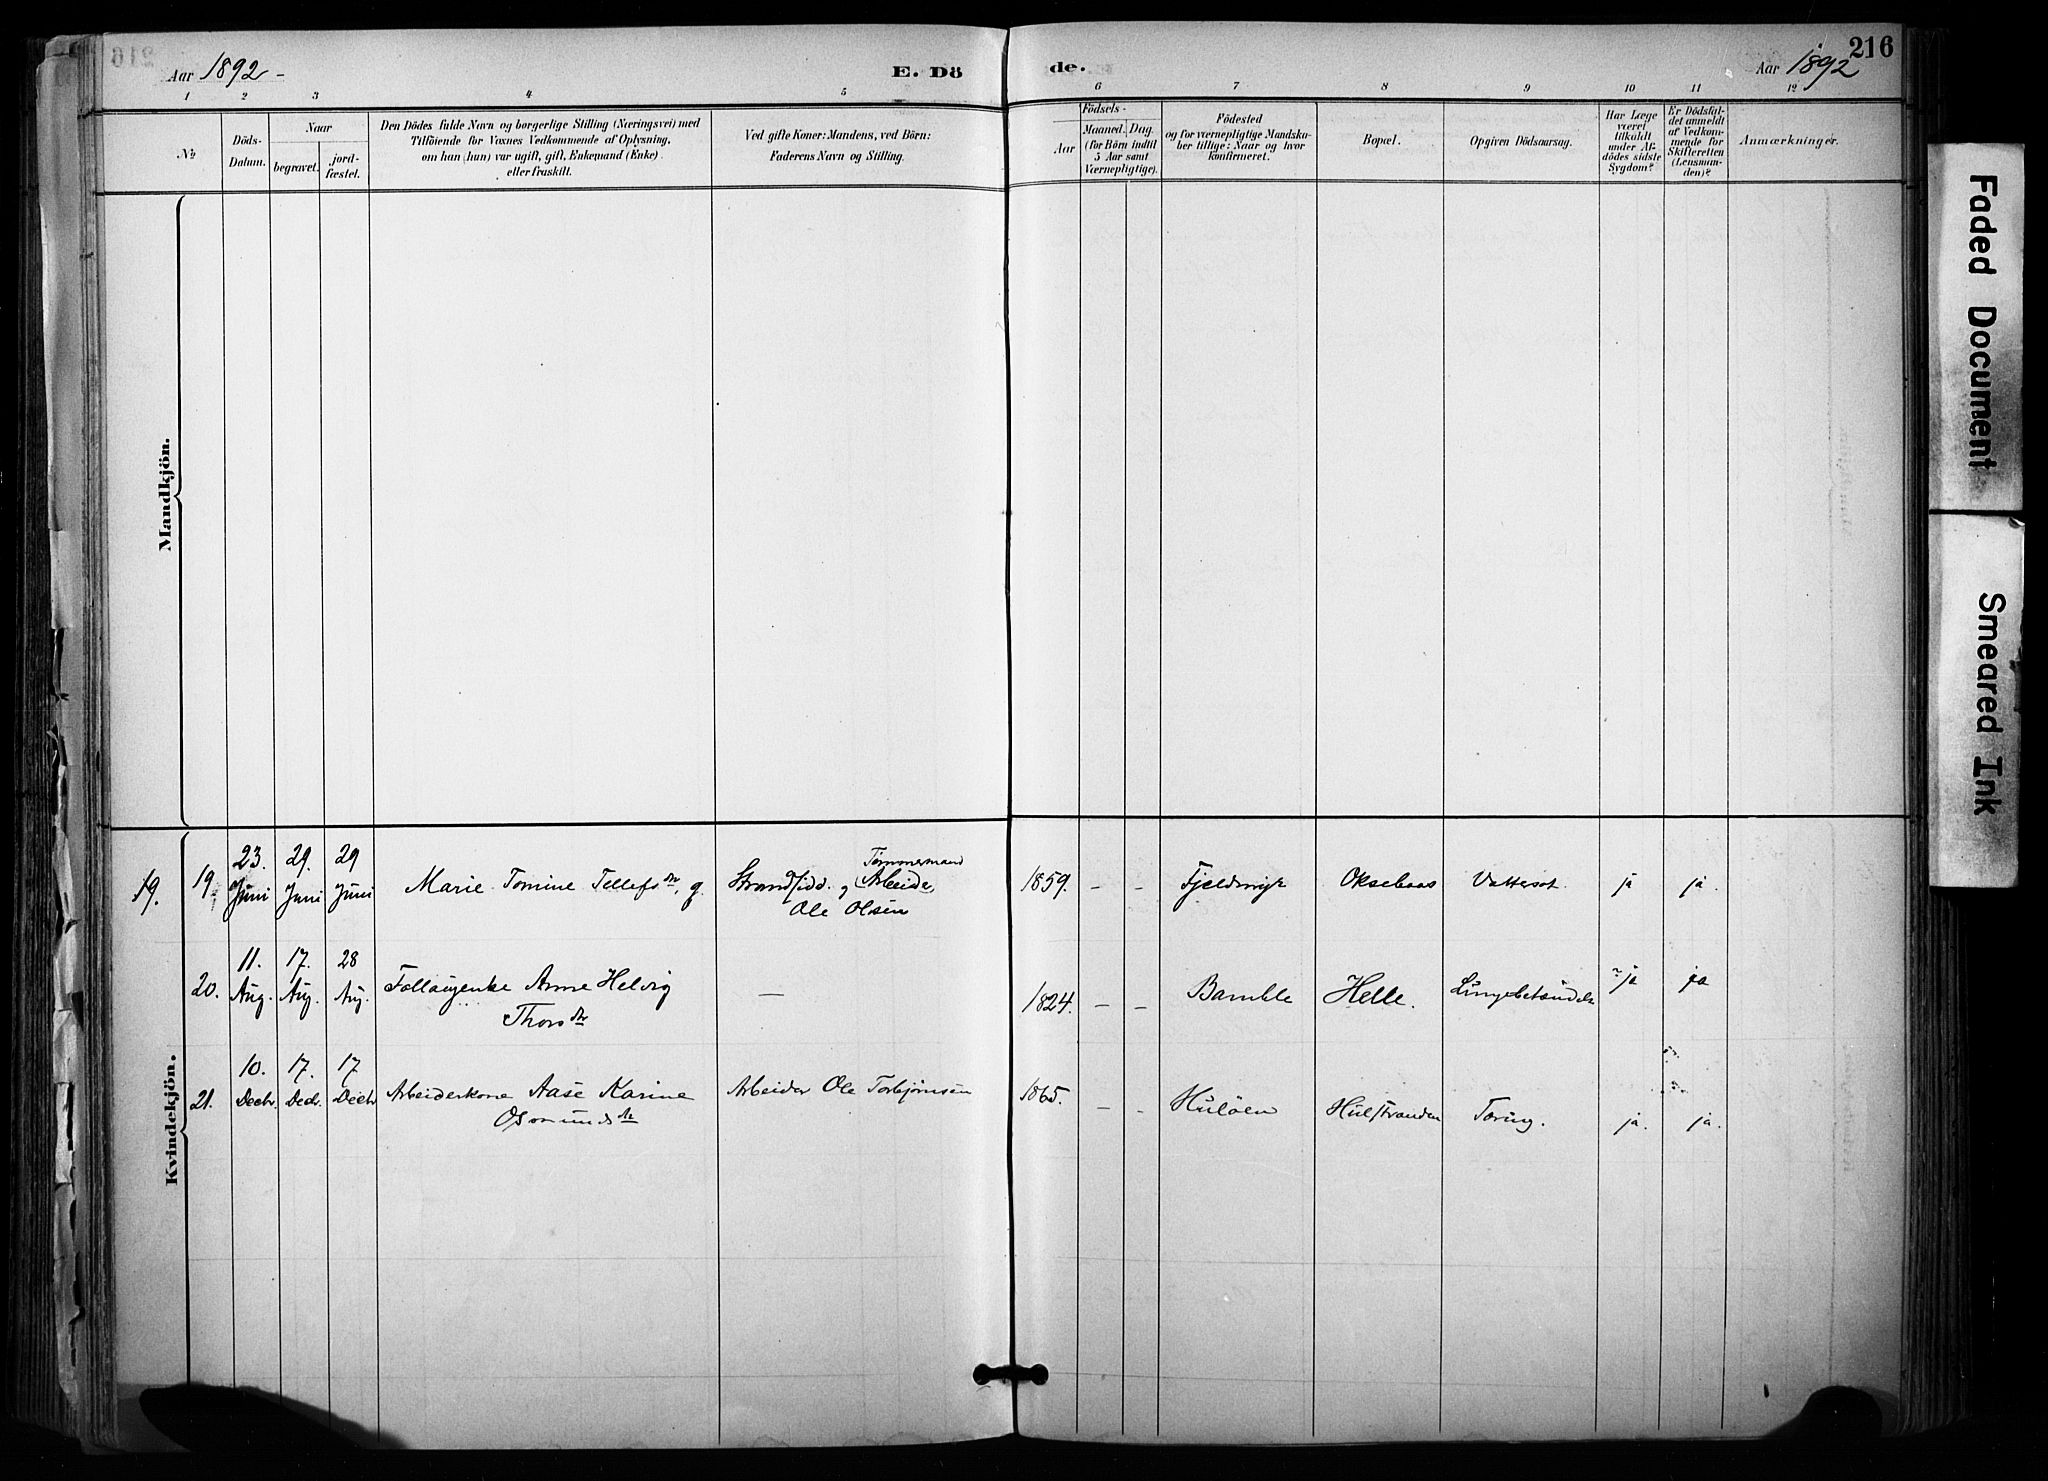 216
Aar 1892 -
E. Dö
de.
Aar 1892
1 2 3 4 5 6 7 8 9 10 11 12
No
Döds-
Datum.
Naar
begravet.
jord-
fæstet.
Den Dödes fulde Navn og borgerlige Stilling (Næringsvei) med
Tilföiende for Voxnes Vedkommende af Oplysning,
om han (hun) var ugift, gift, Enkemand (Enke)
eller fraskilt.
Ved gifte Koner: Mandens, ved Börn:
Faderens Navn og Stilling.
Födsels-
Aar
Maaned. Dag.
(for Börn indtil
5 Aar samt
Værnepligtige).
Födested
og for værnepligtige Mandska-
ber tillige: Naar og hvor
konfirmeret.
Bopæl.
Opgiven Dödsaarsag.
Har Læge
været
tilkaldt
under Af-
dödes sidste
Sygdom?
Er Dödsfal-
det anmeldt
af Vedkom-
mende for
Skifteretten
(Lensman-
den)?
Anmærkninger.
Mandkjön.
Kvindekjön.
19.
19. 23. Juni 29. Juni 29 Juni Marie Tomine Tellefsdtr, g. Strandsidd. og Tømmermand Arbeider
Ole Olsen
1859. - - Oksebaas Vattersot. ja ja.
20. 11. Aug. 17. Aug. 28 Aug. Anne Helvig
Thorsdtr
— 1824. - - Bamble Helle. ja ja
21. 10. Decbr. 17. Decb. 17 Decbr Arbeiderkone Aase Karine
Osmundsdtr
Arbeider Ole Torbjørnsen
1865. - - Huløen Hulstranden Tæring. ja. ja.
Faded Document
Smeared Ink